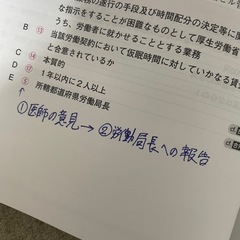 務の遂行の手段及び時間配分の決定等に
な指示をすることが困難なものとして厚生労働省
うち、労働者に就かせることとする業務
B ⑬ 当該労働契約において仮眠時間に対していかなる賃
と合意されているか
C ⑰ 本質的
D ⑭ 1年以内に2人以上
E ⑤ 所轄都道府県労働局長
①医師の意見→②労働局長への報告